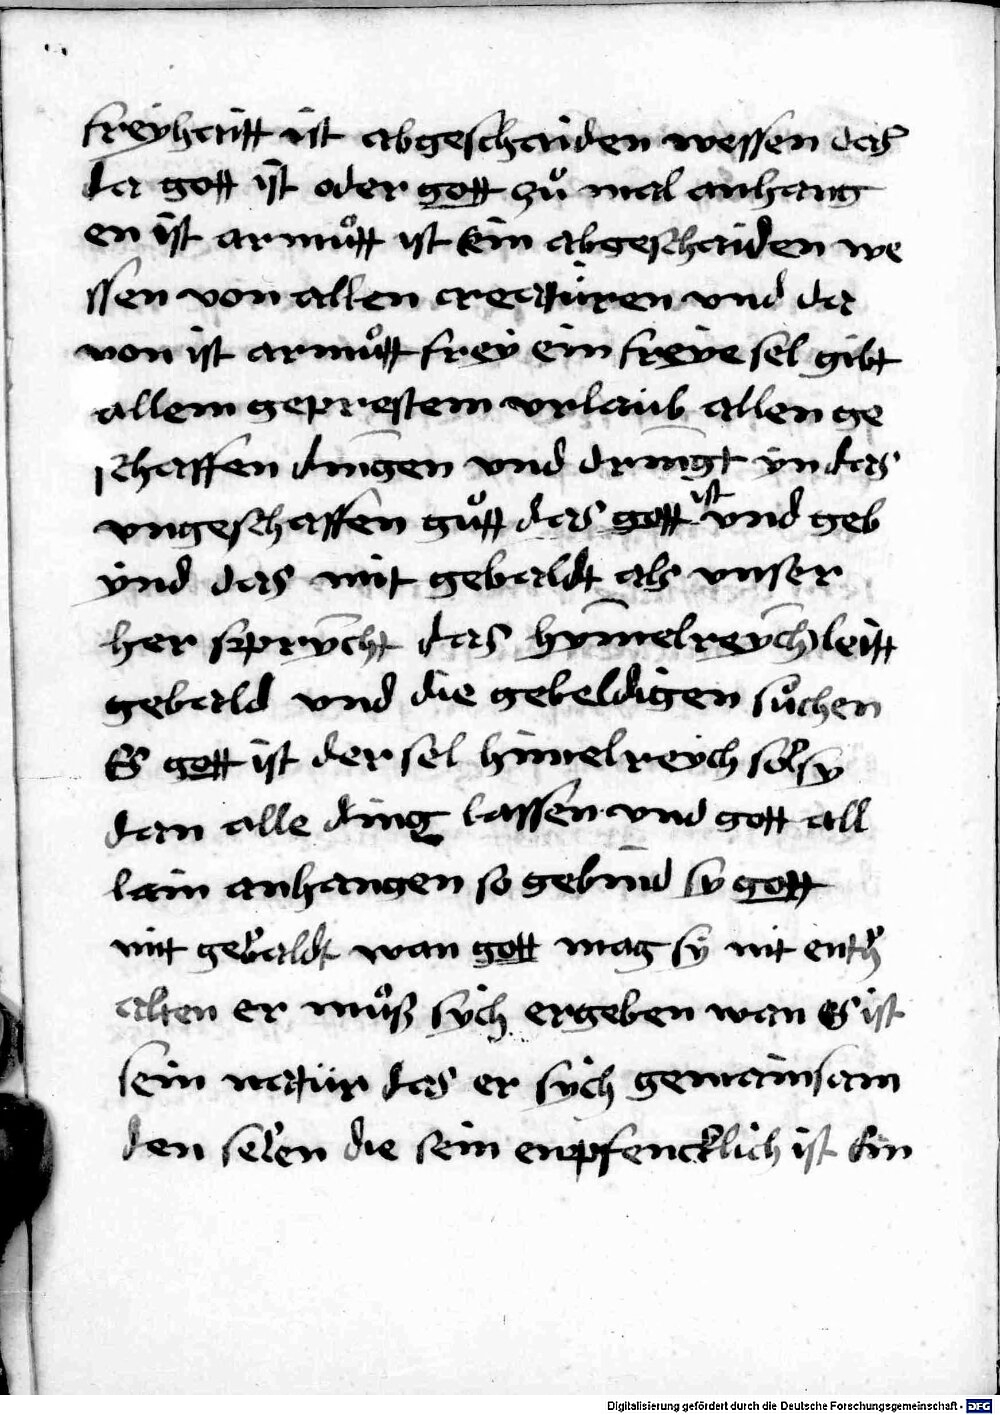 freyhaitt ist abgeschaiden wessen das
da gott ist oder gott zů mal anhang
en ist armůtt ist Ein abgeschaiden we
ssen von allen creatüren vnd da
von ist armůtt frey ein freye sel gibt
allem geprestem vrlaub allen ge
schaffen dingen vnd dringt yn das
vngeschaffen gůtt das gott ist vnd geb
ynd das mit gebaldt als vnser
her sprycht das hymelreych leitt
gebald vnd die gebeldigen sůchen
Es gott ist der sel himelreych sol sy
dan alle ding lassen vnd gott all
lain anhangen so gebind sy gott
mit gebaldt wan gott mag sy nit enth
alten er můß sych ergeben wan Es ist
sein natür das er sych gemainsam
den selen die sein enpfencklich ist Ein
Digitalisierung gefördert durch die Deutsche Forschungsgemeinschaft - DFG